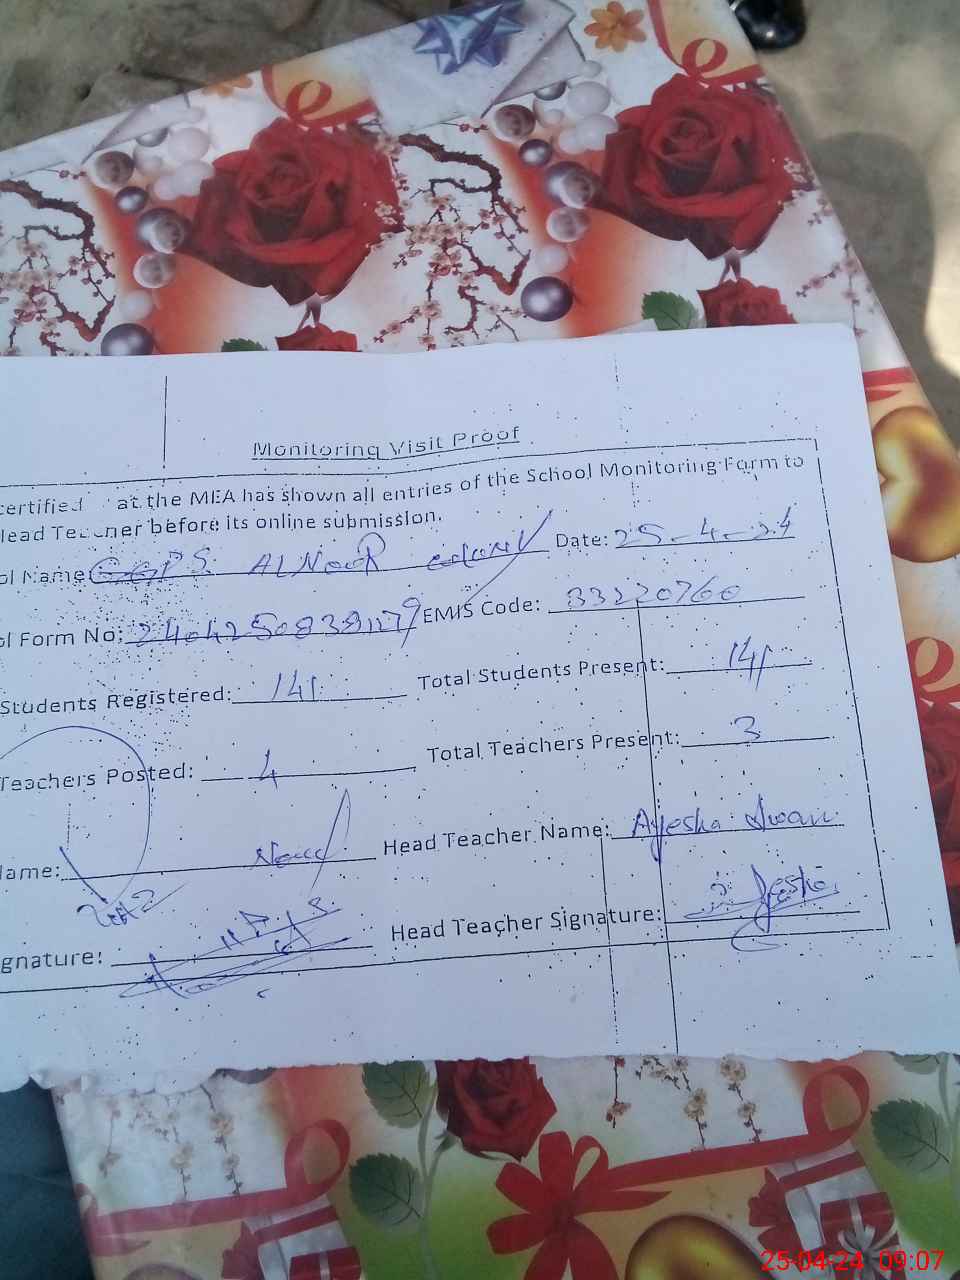 Monitoring Visit Proof
certified at the MEA has shown all entries of the School Monitoring Form to
lead Teacher before its online submission.
ol Name GGPS ALNooR colony Date: 25-4-24
ol Form No: EMIS Code: 33220760
Students Registered: 141 Total Students Present: 141
Teachers Posted: 4 Total Teachers Present: 3
Name: Head Teacher Name: Ayesha
gnature: Head Teacher Signature: Ayesha
25-04-24 09:07